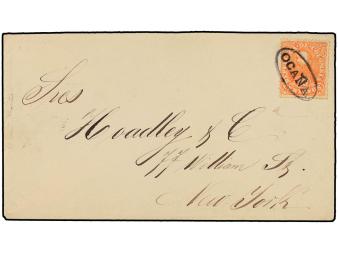 OCAÑA
Sres
Hoadley & C
77 William St.
New-York